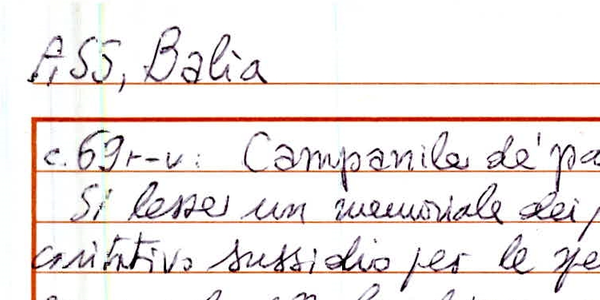 ASS, Balia
c. 69r-v: Campanile de' pa
Si lesse un memoriale dei
caritativo sussidio per le spe